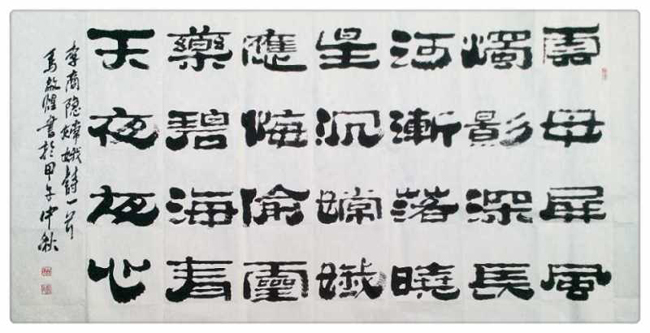 雲母屏風
燭影深長
河漸落曉
星沉嫦娥
應悔偷靈
藥碧海青
天夜夜心
李商隐嫦娥詩一首
馬啟煌書於甲午中秋